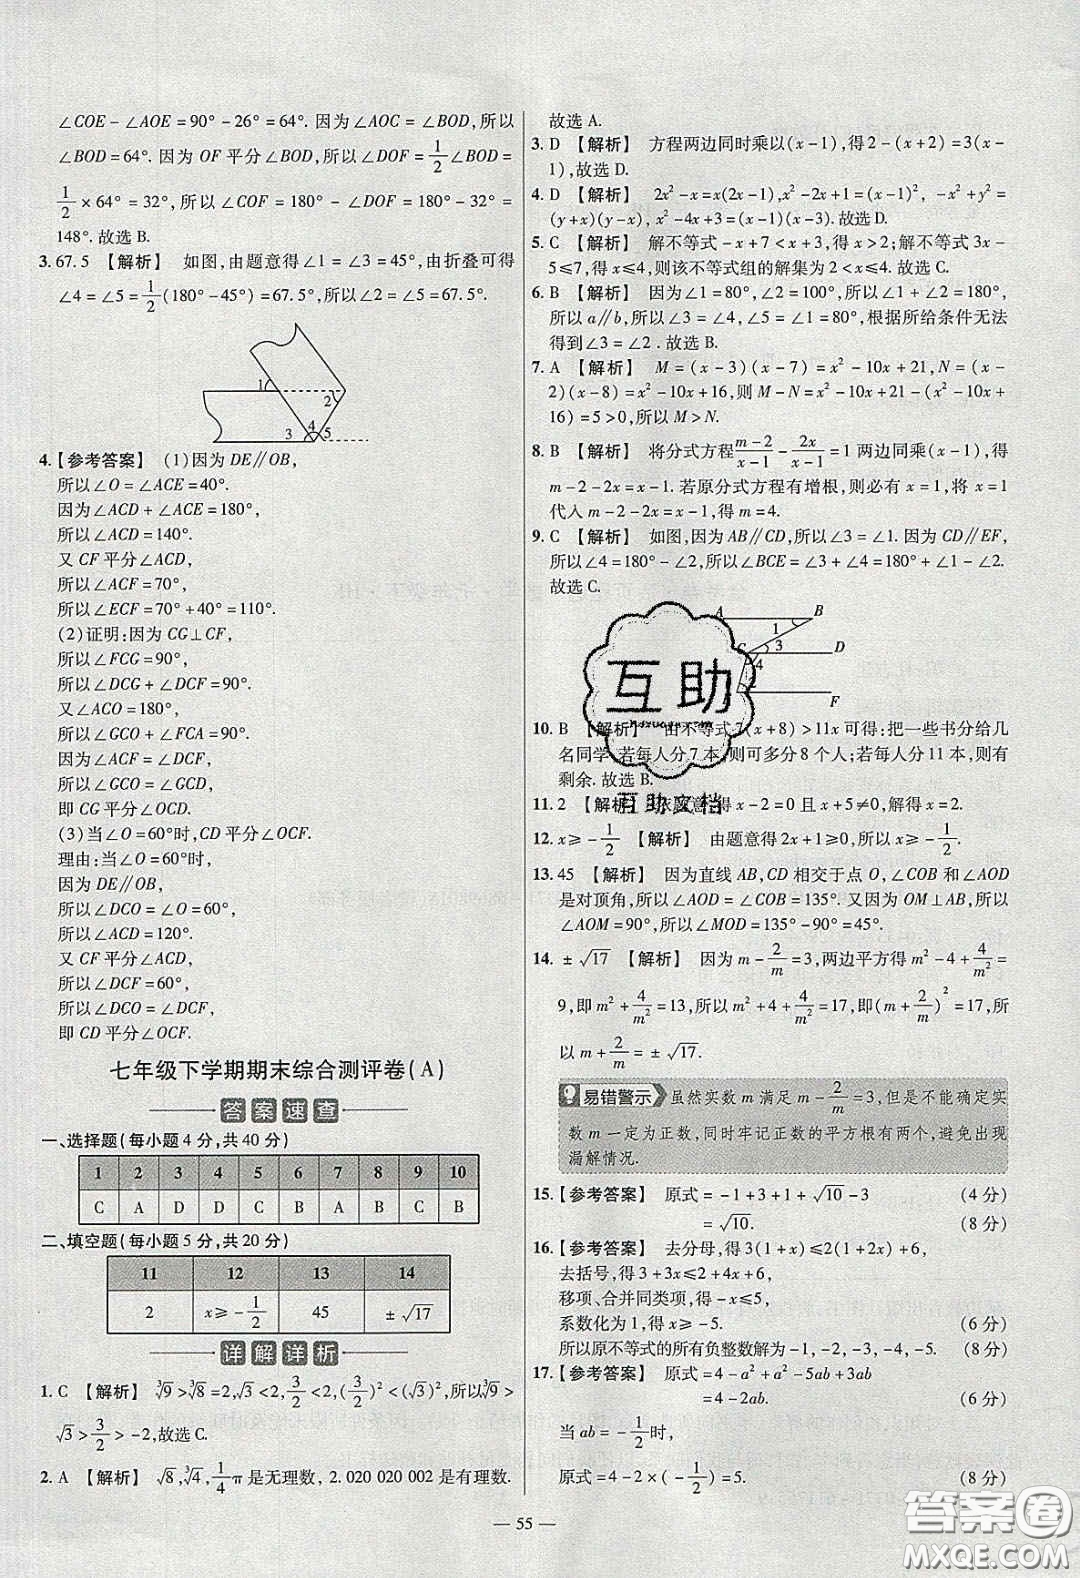 ∠COE-∠AOE=90°-26°=64°. 因为∠AOC=∠BOD,所以
∠BOD=64°. 因为 OF 平分∠BOD,所以∠DOF=1/2∠BOD=
1/2×64°=32°,所以∠COF=180°-∠DOF=180°-32°=
148°. 故选 B.
3. 67.5 【解析】 如图,由题意得∠1=∠3=45°,由折叠可得
∠4=∠5=1/2(180°-45°)=67.5°,所以∠2=∠5=67.5°.
1 2 3 4 5
4.【参考答案】 (1)因为 DE∥OB,
所以∠O=∠ACE=40°.
因为∠ACD+∠ACE=180°,
所以∠ACD=140°.
又 CF 平分∠ACD,
所以∠ACF=70°,
所以∠ECF=70°+40°=110°.
(2)证明:因为 CG⊥CF,
所以∠FCG=90°,
所以∠DCG+∠DCF=90°.
又∠ACO=180°,
所以∠GCO+∠FCA=90°.
因为∠ACF=∠DCF,
所以∠GCO=∠GCD,
即 CG 平分∠OCD.
(3)当∠O=60°时,CD 平分∠OCF.
理由:当∠O=60°时,
因为 DE∥OB,
所以∠DCO=∠O=60°,
所以∠ACD=120°.
又 CF 平分∠ACD,
所以∠DCF=60°,
所以∠DCO=∠DCF,
即 CD 平分∠OCF.
七年级下学期期末综合测评卷(A)
答案速查
一、选择题(每小题 4 分,共 40 分)
1 2 3 4 5 6 7 8 9 10
C A D D C B A B C B
二、填空题(每小题 5 分,共 20 分)
11 12 13 14
2 x≥-1/2 45 ±√17
详解详析
1. C 【解析】 ∛9>∛8=2,√3<2,3/2<2,(3/2)²<(√3)²,所以∛9>
√3>3/2>-2,故选 C.
2. A 【解析】 √8,∛4,1/4π是无理数,2.020 020 002 是有理数.
故选 A.
3. D 【解析】 方程两边同时乘以(x-1),得 2-(x+2)=3(x-
1),故选 D.
4. D 【解析】 2x²-x=x(2x-1),x²-2x+1=(x-1)²,-x²+y²=
(y+x)(y-x), x²-4x+3=(x-1)(x-3).故选 D.
5. C 【解析】 解不等式-x+7<x+3,得 x>2;解不等式 3x-
5≤7,得 x≤4,则该不等式组的解集为 2<x≤4. 故选 C.
6. B 【解析】 因为∠1=80°,∠2=100°,所以∠1+∠2=180°,
所以 a∥b,所以∠3=∠4,∠5=∠1=80°,根据所给条件无法
得到∠3=∠2. 故选 B.
7. A 【解析】 M=(x-3)(x-7)=x²-10x+21,N=(x-
2)(x-8)=x²-10x+16,则 M-N=x²-10x+21-(x²-10x+
16)=5>0,所以 M>N.
8. B 【解析】 将分式方程(m-2)/(x-1)-2x/(x-1)=1 两边同乘(x-1),得
m-2-2x=x-1. 若原分式方程有增根,则必有 x=1,将 x=1
代入 m-2-2x=x-1,得 m=4.
9. C 【解析】 如图,因为 AB∥CD,所以∠3=∠1. 因为 CD∥EF,
所以∠4=180°-∠2,所以∠BCE=∠3+∠4=180°+∠1-∠2.
故选 C.
A B 1 C 3 D 4 2 F
10. B 【解析】 由不等式 7(x+8)>11x 可得:把一些书分给几
名同学,若每人分 7 本,可多分 8 个人;若每人分 11 本,则有
剩余. 故选 B.
11. 2 【解析】 依题意,得 x-2=0 且 x+1≠0,解得 x=2.
12. x≥-1/2 【解析】 由题意得 2x+1≥0,所以 x≥-1/2.
13. 45 【解析】 因为直线 AB,CD 相交于点 O,∠COB 和∠AOD
是对顶角,所以∠AOD=∠COB=135°. 又因为 OM⊥AB,所以
∠AOM=90°,所以∠MOD=135°-90°=45°.
14. ±√17 【解析】 因为 m-2/m=3,两边平方得 m²-4+4/m²=
9,即 m²+4/m²=13,所以 m²+4+4/m²=17,即(m+2/m)²=17,所
以 m+2/m=±√17.
易错警示 虽然实数 m 满足 m-2/m=3,但是不能确定实
数 m 一定为正数,同时牢记正数的平方根有两个,避免出现
漏解情况.
15.【参考答案】 原式=-1+3+1+√10-3 (4 分)
=√10. (8 分)
16.【参考答案】 去分母,得 3(1+x)≤2(1+2x)+6,
去括号,得 3+3x≤2+4x+6,
移项、合并同类项,得-x≤5,
系数化为 1,得 x≥-5. (6 分)
所以原不等式的所有负整数解为-1,-2,-3,-4,-5. (8 分)
17.【参考答案】 原式=4-a²+a²-5ab+3ab
=4-2ab. (6 分)
当 ab=-1/2时,
原式=4-2×(-1/2)=5. (8 分)
— 55 —
互助
互助文档
答案圈
MXQE.COM